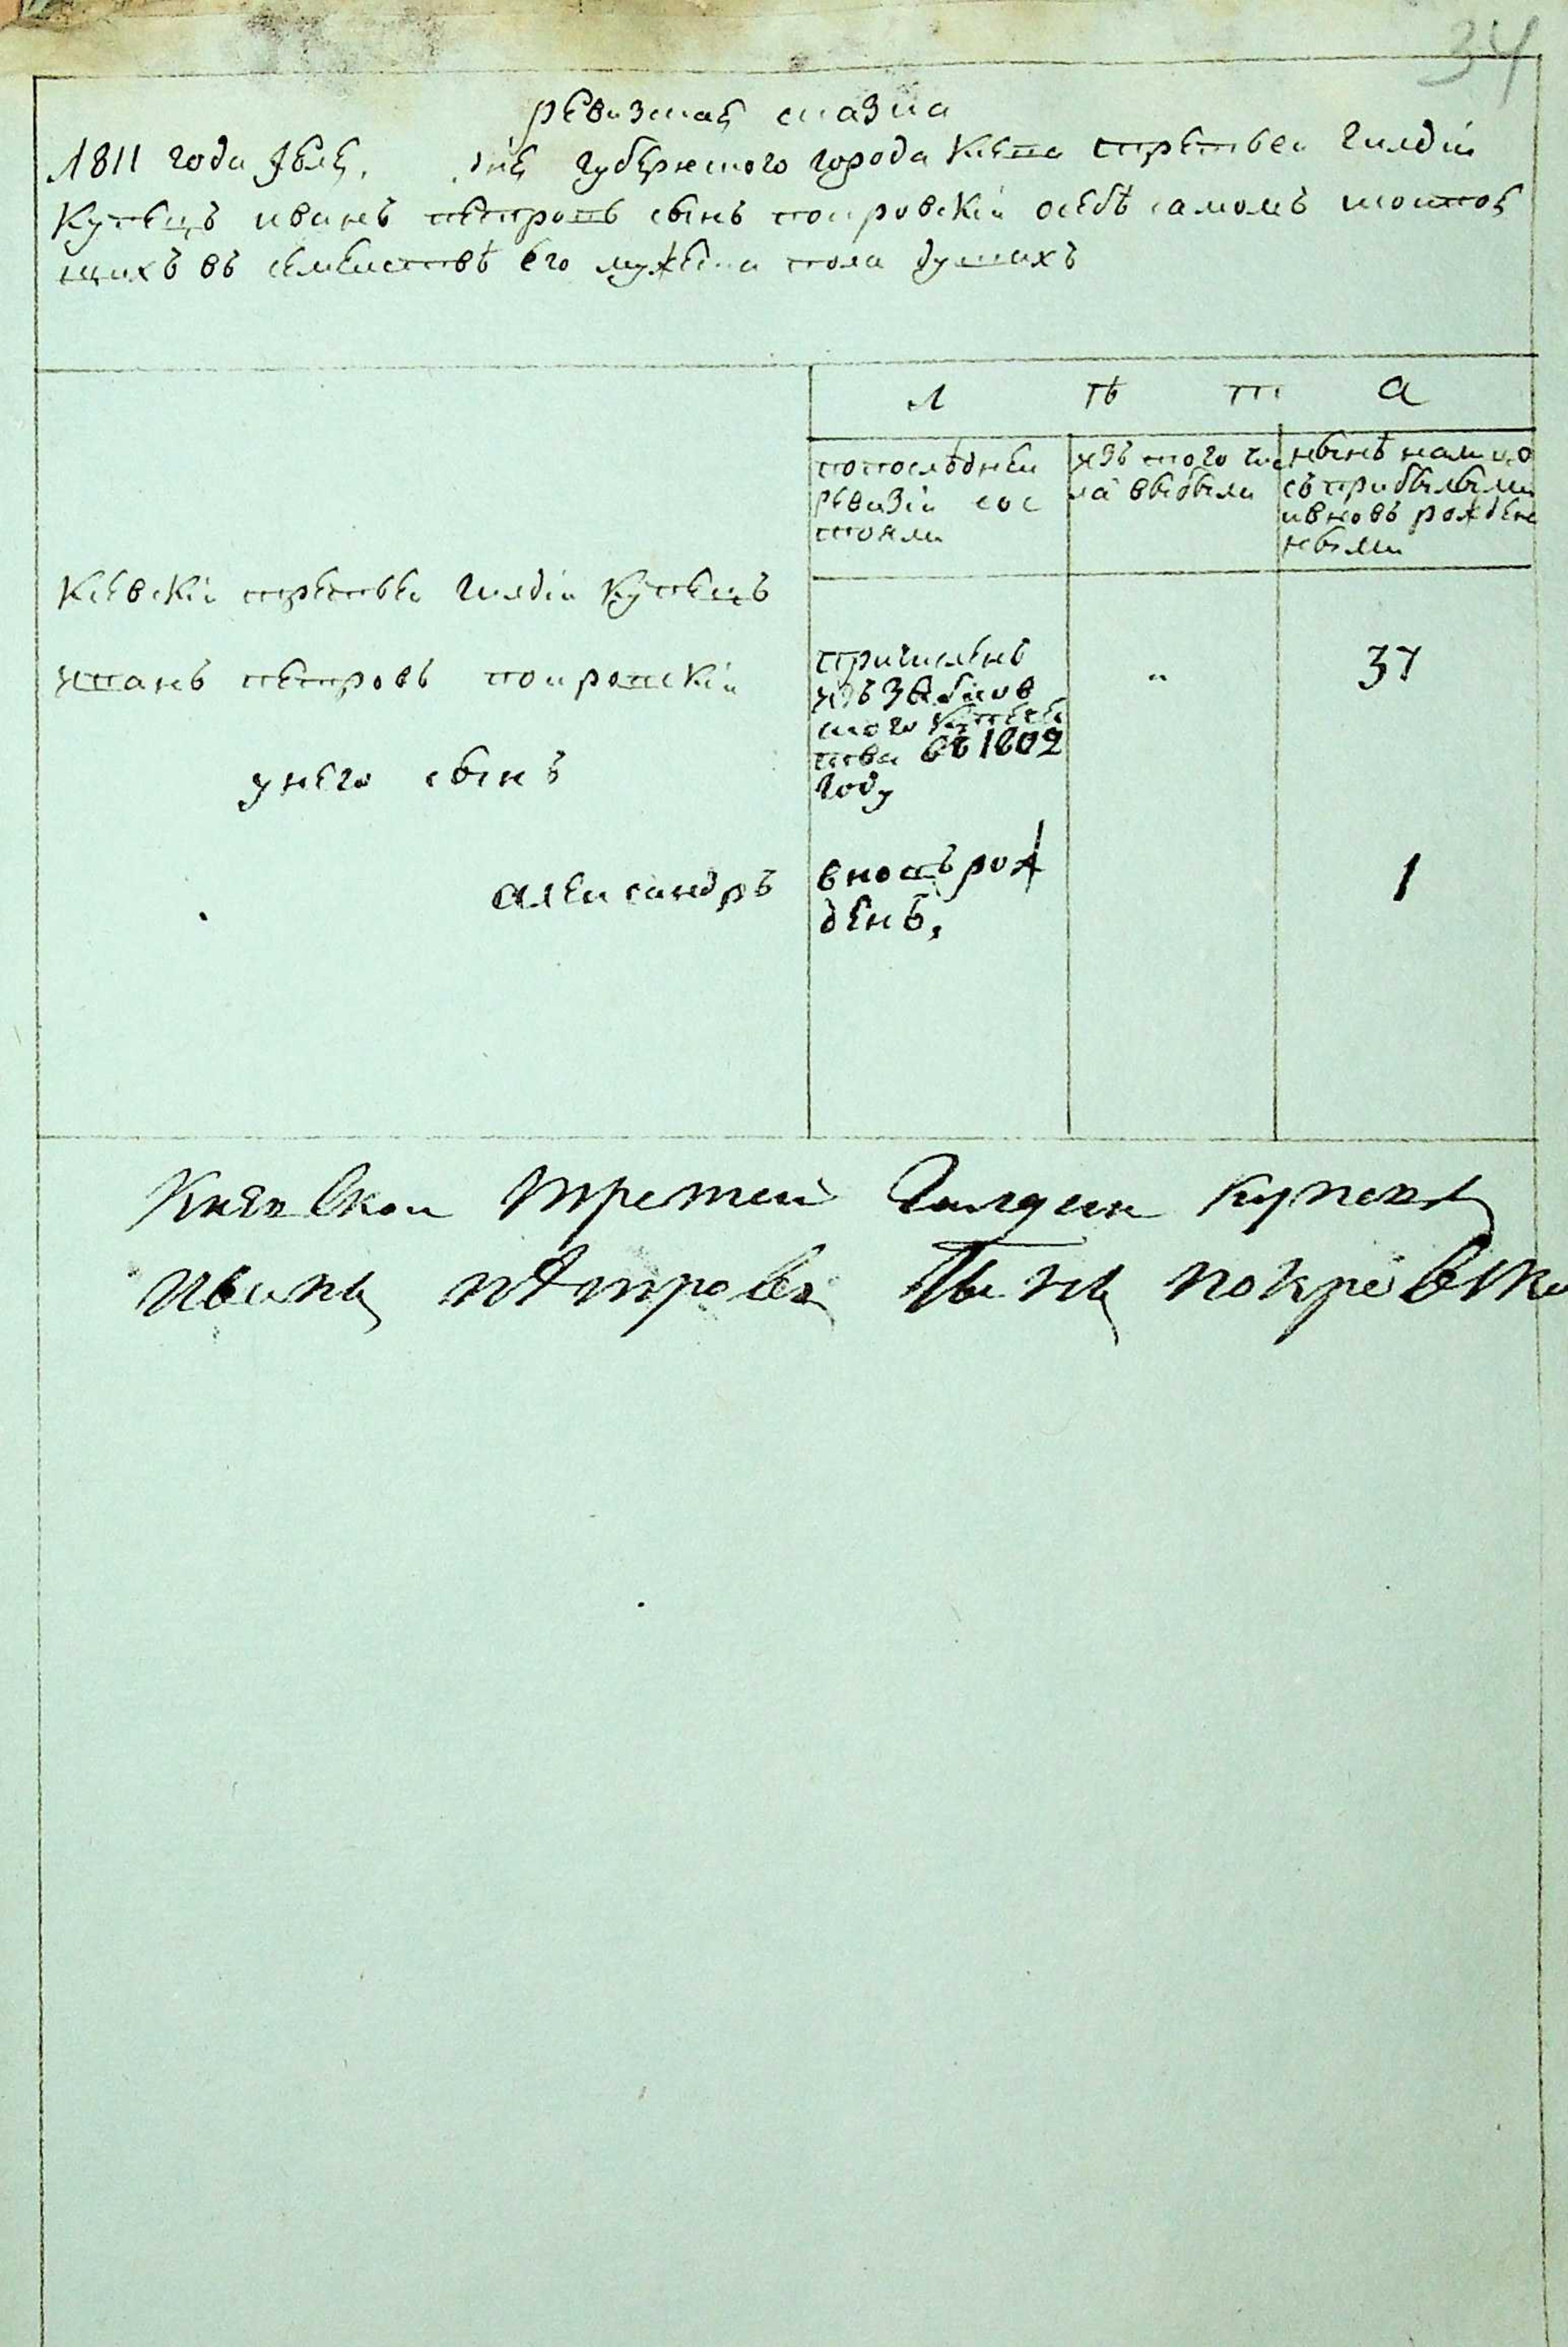 34
ревизская сказка
1811 года Июля дня губернского города Киева третьей гилдіи
купецъ иванъ петровъ сынъ покровскій осебѣ самомъ исостоя
щихъ въ семействѣ его мужеска пола душахъ
Л ѣ т а
попослѣдней ревизіи сос стояли
изъ того чис ла выбыли
нынѣ налицо съ прибылыми ивновь рожден ными
Кіевскій третьей гилдіи купецъ
иванъ петровъ покровскій
причисленъ изъ ского купече ства въ 1802 году
"
37
унего сынъ
александръ
вновь рож денъ,
1
Киевскои третей Гилдии купецъ
Иванъ петровъ Сынъ покровски